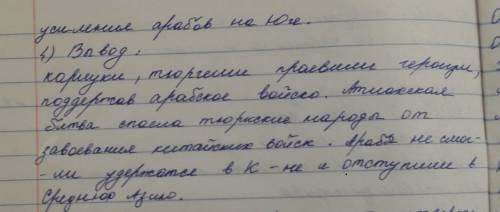 усиления арабов на Юге.
4) Вывод:
карлуки, тюргеши проевили героизм,
поддержав арабское войско. Атлахская
битва спасла тюркские народы от
завоевания китайских войск. Арабы не смог-
-ли удержатся в К-не и отступили в
Среднюю Азию.